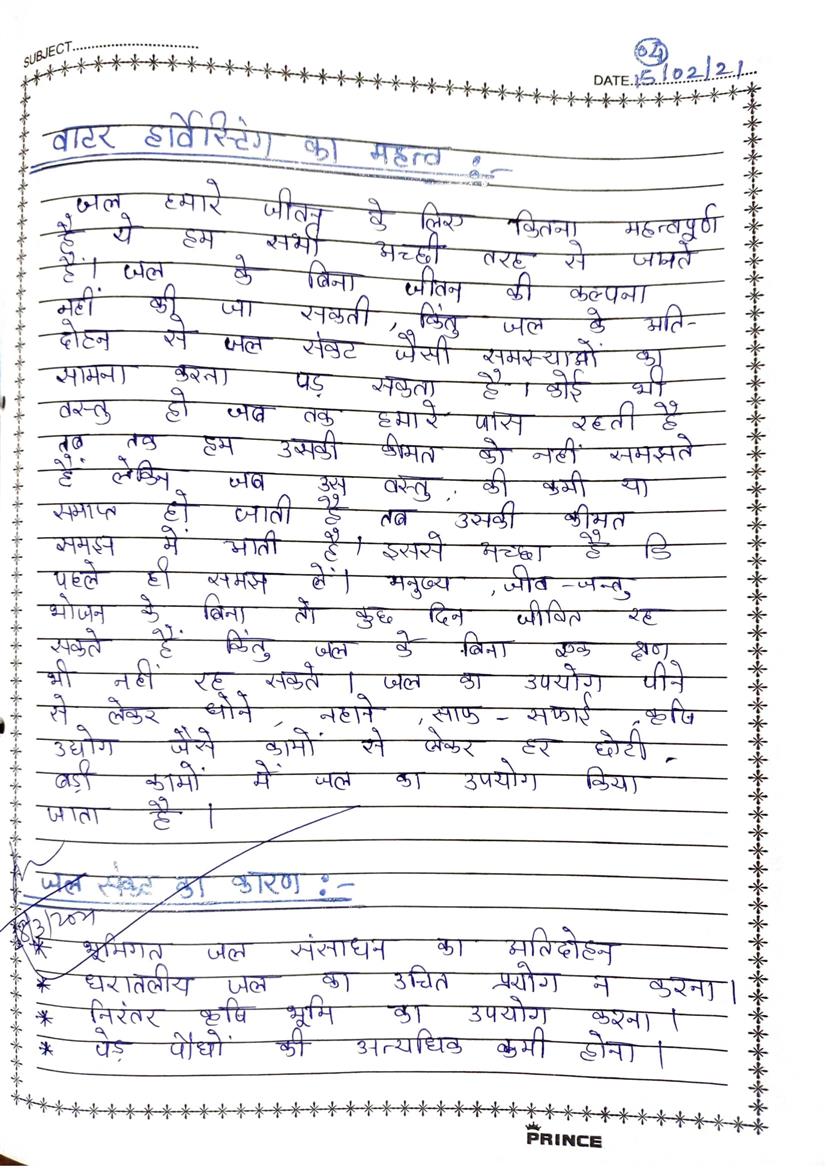 SUBJECT
04
DATE 15/02/21
वाटर हार्वेस्टिंग का महत्व :-
जल हमारे जीवन के लिए कितना महत्वपूर्ण
है ये हम सभी अच्छी तरह से जानते
हैं। जल के बिना जीवन की कल्पना
नहीं की जा सकती, किंतु जल के अति-
दोहन से जल संकट जैसी समस्याओं का
सामना करना पड़ सकता है। कोई भी
वस्तु हो जब तक हमारे पास रहती है
तब तक हम उसकी कीमत को नहीं समझते
हैं लेकिन जब उस वस्तु की कमी या
समाप्त हो जाती है तब उसकी कीमत
समझ में आती है। इससे अच्छा है कि
पहले ही समझ लें। मनुष्य, जीव-जन्तु
भोजन के बिना तो कुछ दिन जीवित रह
सकते हैं किंतु जल के बिना एक क्षण
भी नहीं रह सकते। जल का उपयोग पीने
से लेकर धोने, नहाने, साफ-सफाई, कृषि
उद्योग जैसे कामों से लेकर हर छोटी-
बड़ी कामों में जल का उपयोग किया
जाता है।
जल संकट का कारण :-
8/3/2021
* भूमिगत जल संसाधन का अतिदोहन
* धरातलीय जल का उचित प्रयोग न करना।
* निरंतर कृषि भूमि का उपयोग करना।
* पेड़ पौधों की अत्यधिक कमी होना।
PRINCE